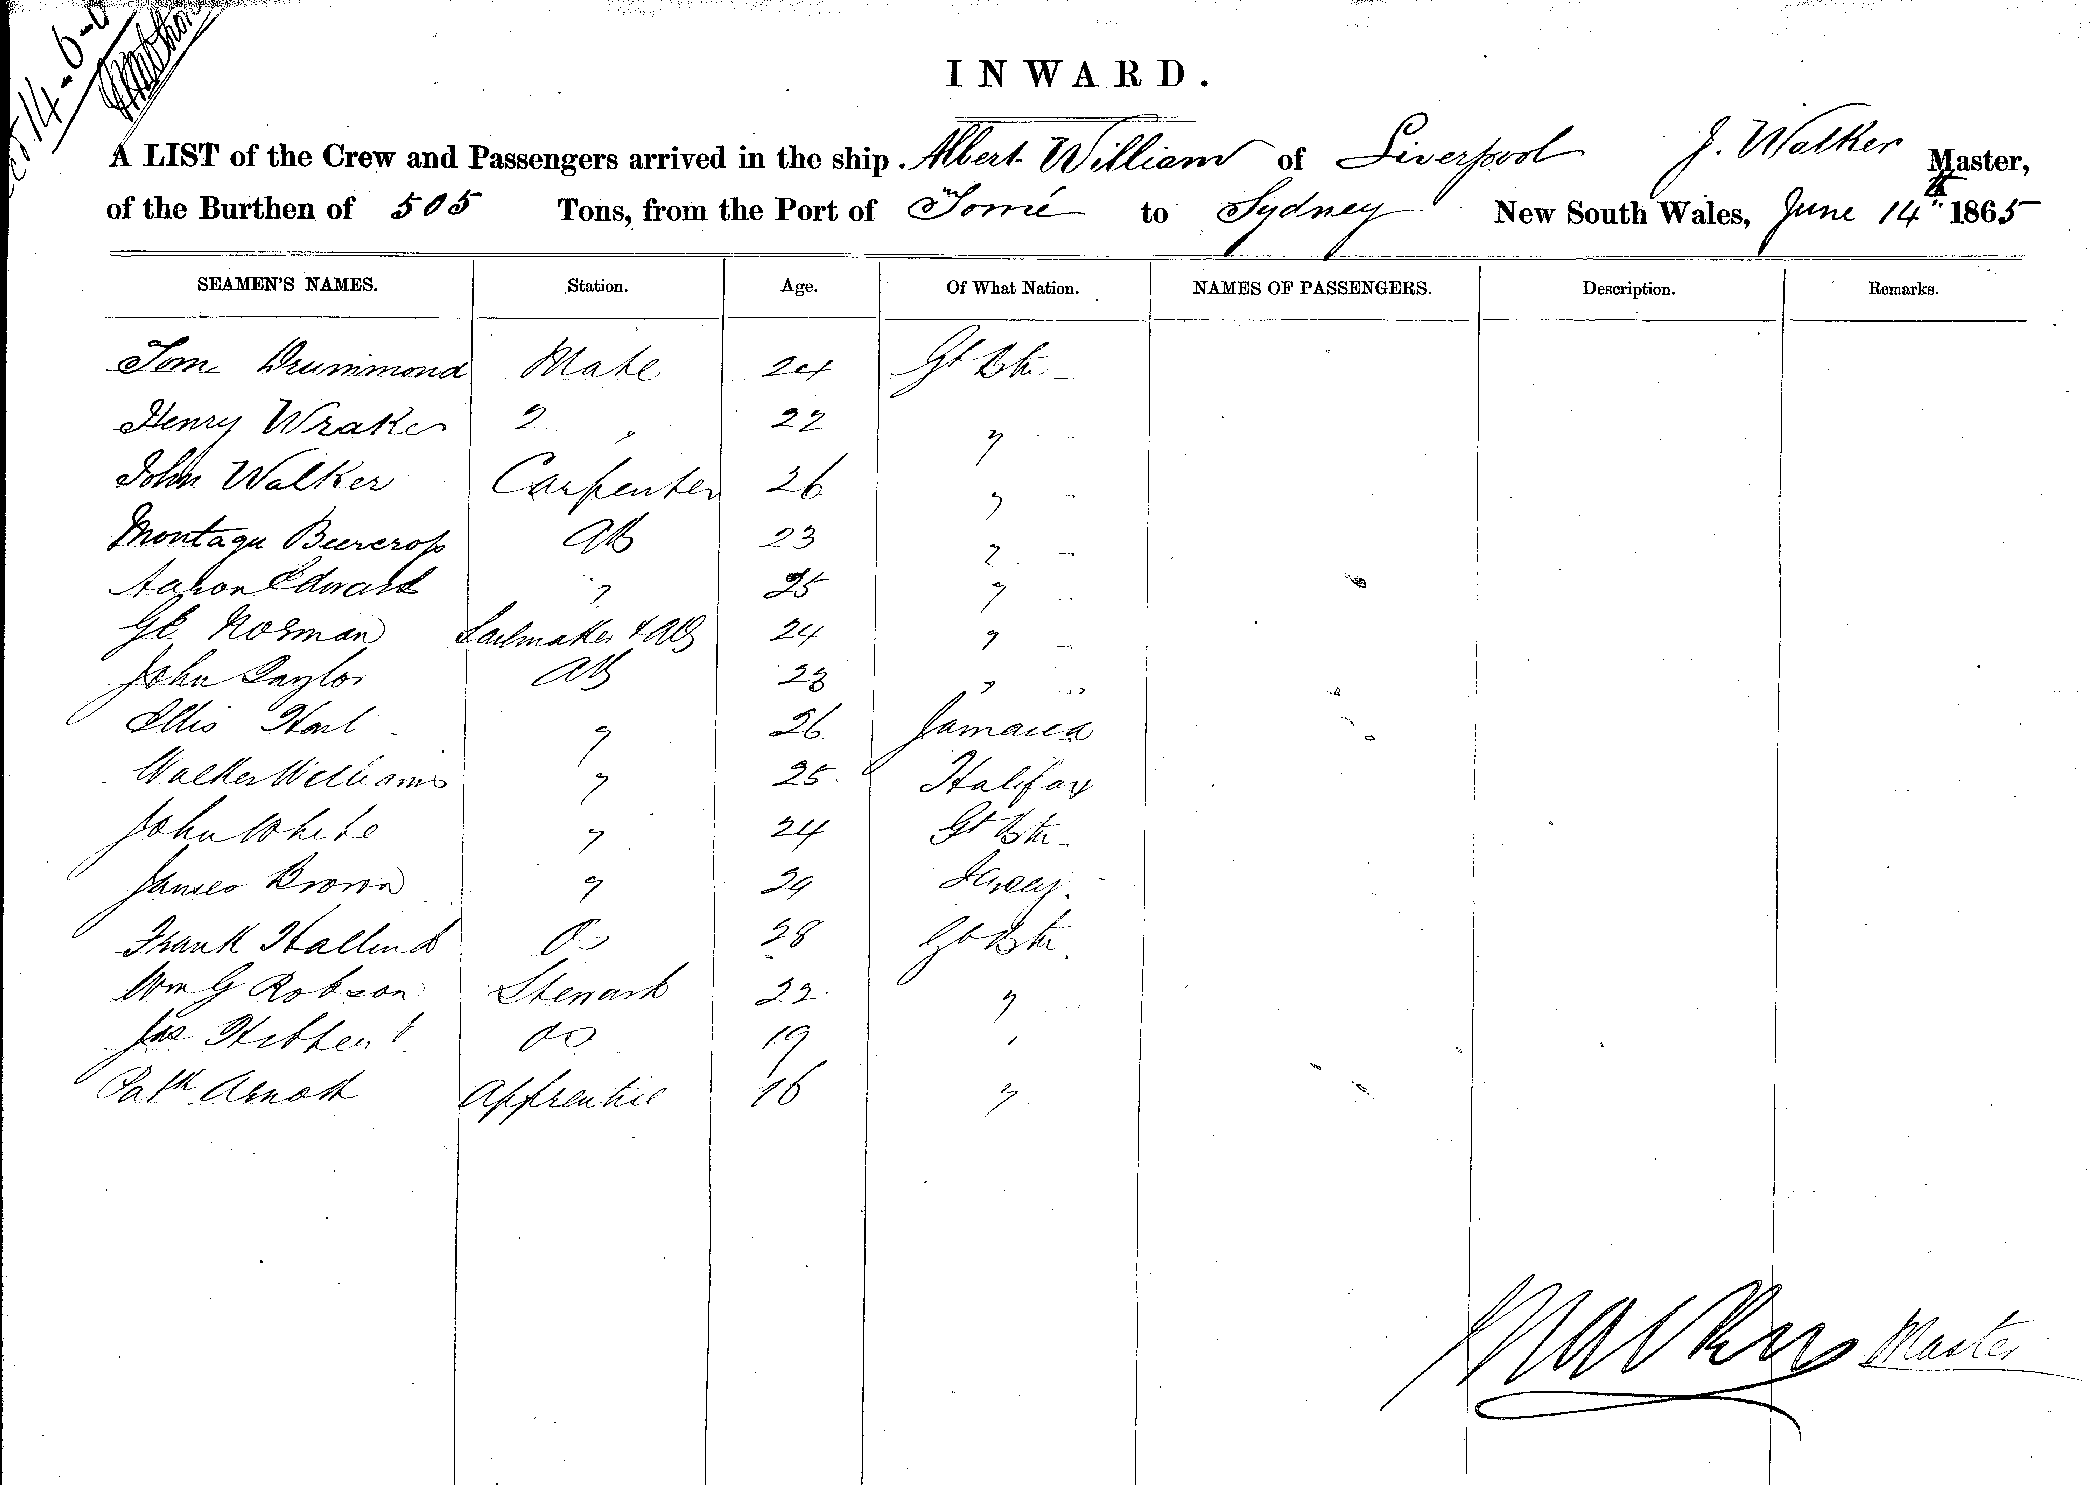 14-6-6
INWARD.
A LIST of the Crew and Passengers arrived in the ship Albert William of Liverpool J. Walker Master,
of the Burthen of 505 Tons, from the Port of Tomé to Sydney New South Wales, June 14th 1865
SEAMEN'S NAMES. Station. Age. Of What Nation. NAMES OF PASSENGERS. Description. Remarks.
Tom Drummond Mate 24 Gt Btn
Henry Wraker 2 " 22 "
John Walker Carpenter 26 "
Montagu Beercroft AB 23 "
Aaron Edward " 25 "
G E Norman Sailmaker & AB 24 "
John Taylor AB 23 " "
Ellis Hart " 26 Jamaica
Walker Williams " 25 Halifax
John White " 24 Gt Btn
James Brown " 29 Jersey
Frank OS 28 Gt Btn
Wm G Robson Steward 22 "
Jas Hibbert OS 19 "
Patk Arnott Apprentice 16 "
J Walker Master